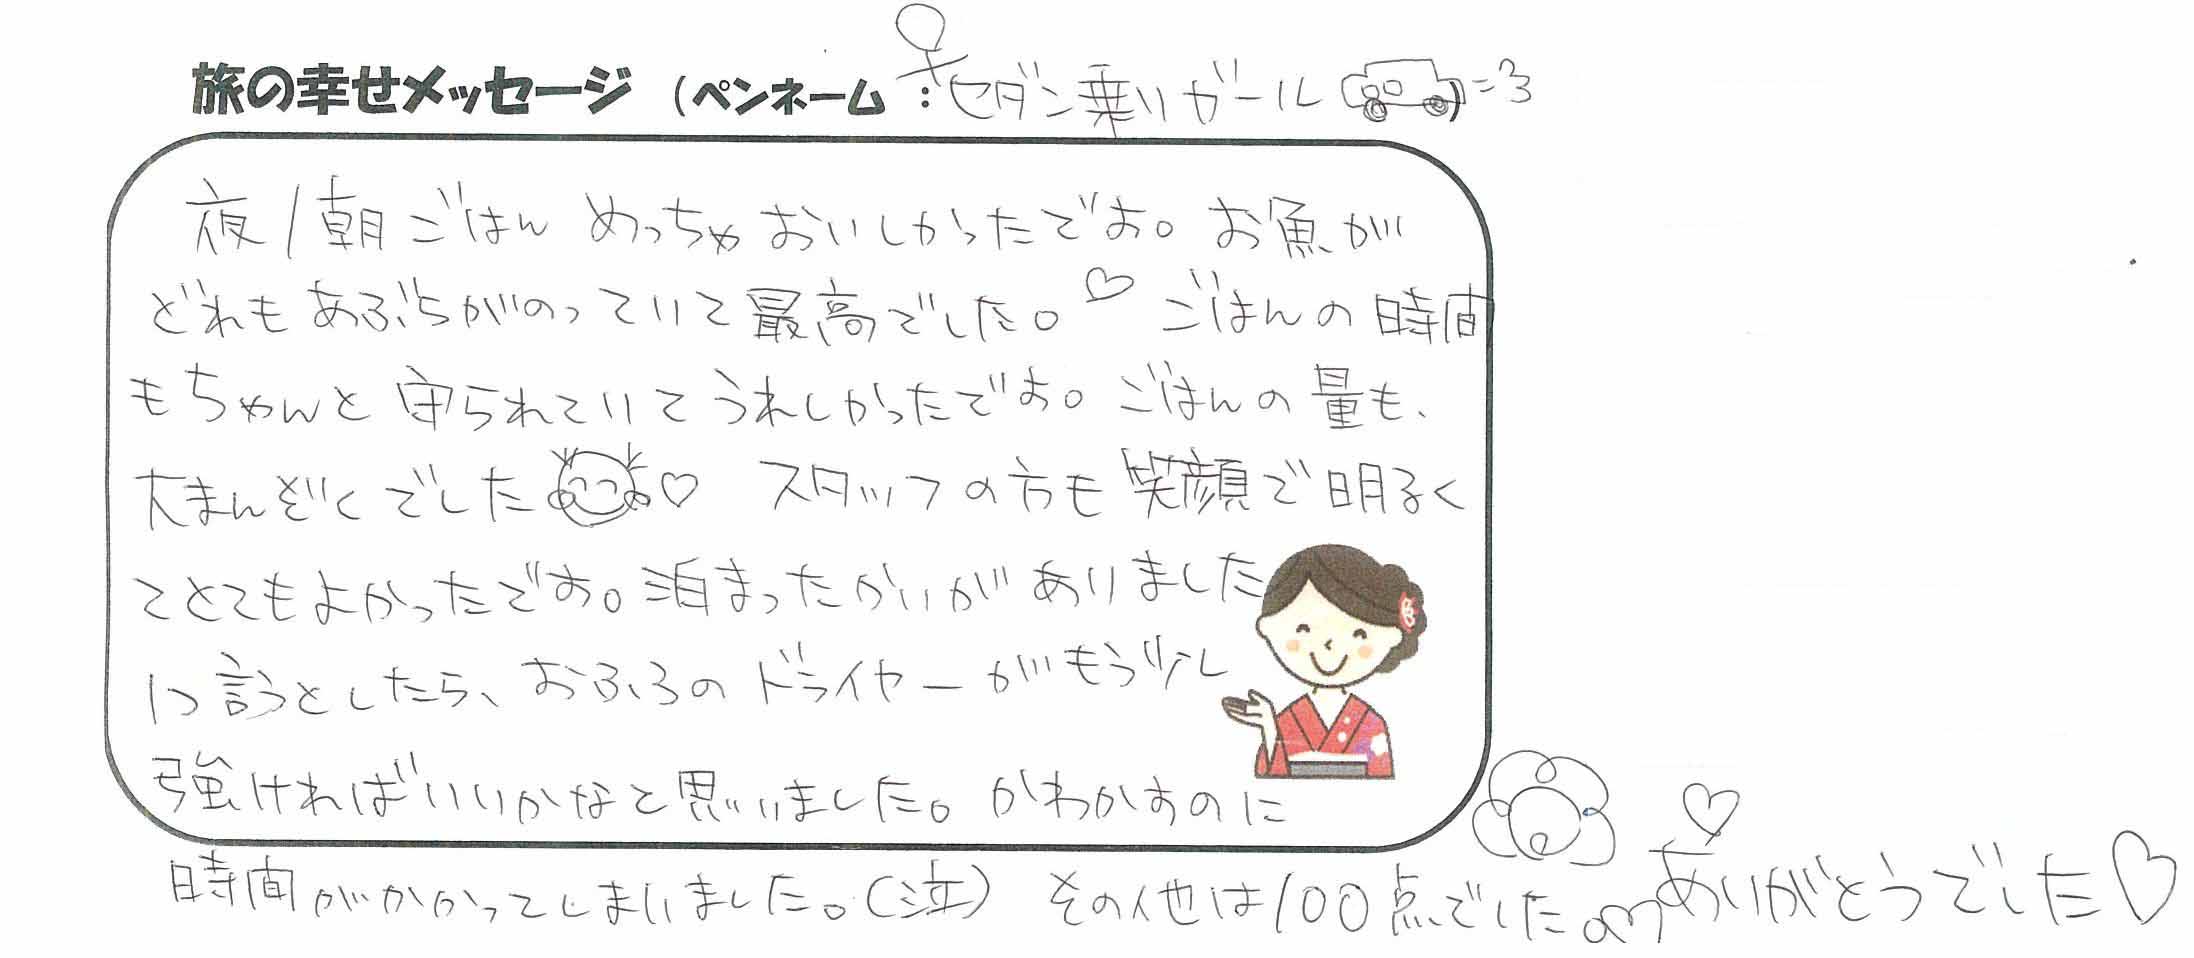 旅の幸せメッセージ (ペンネーム : セダン乗りガール )=3
夜/朝ごはん めっちゃおいしかったです。お魚が
どれもあぶらがのっていて最高でした。♡ ごはんの時間
もちゃんと守られていてうれしかったです。ごはんの量も、
大まんぞくでした♡ スタッフの方も笑顔で明るく
てとてもよかったです。泊まったかいがありました
1つ言うとしたら、おふろのドライヤーがもう少し
強ければいいかなと思いました。かわかすのに
時間がかかってしまいました。(泣) その他は100点でした
ありがとうでした♡